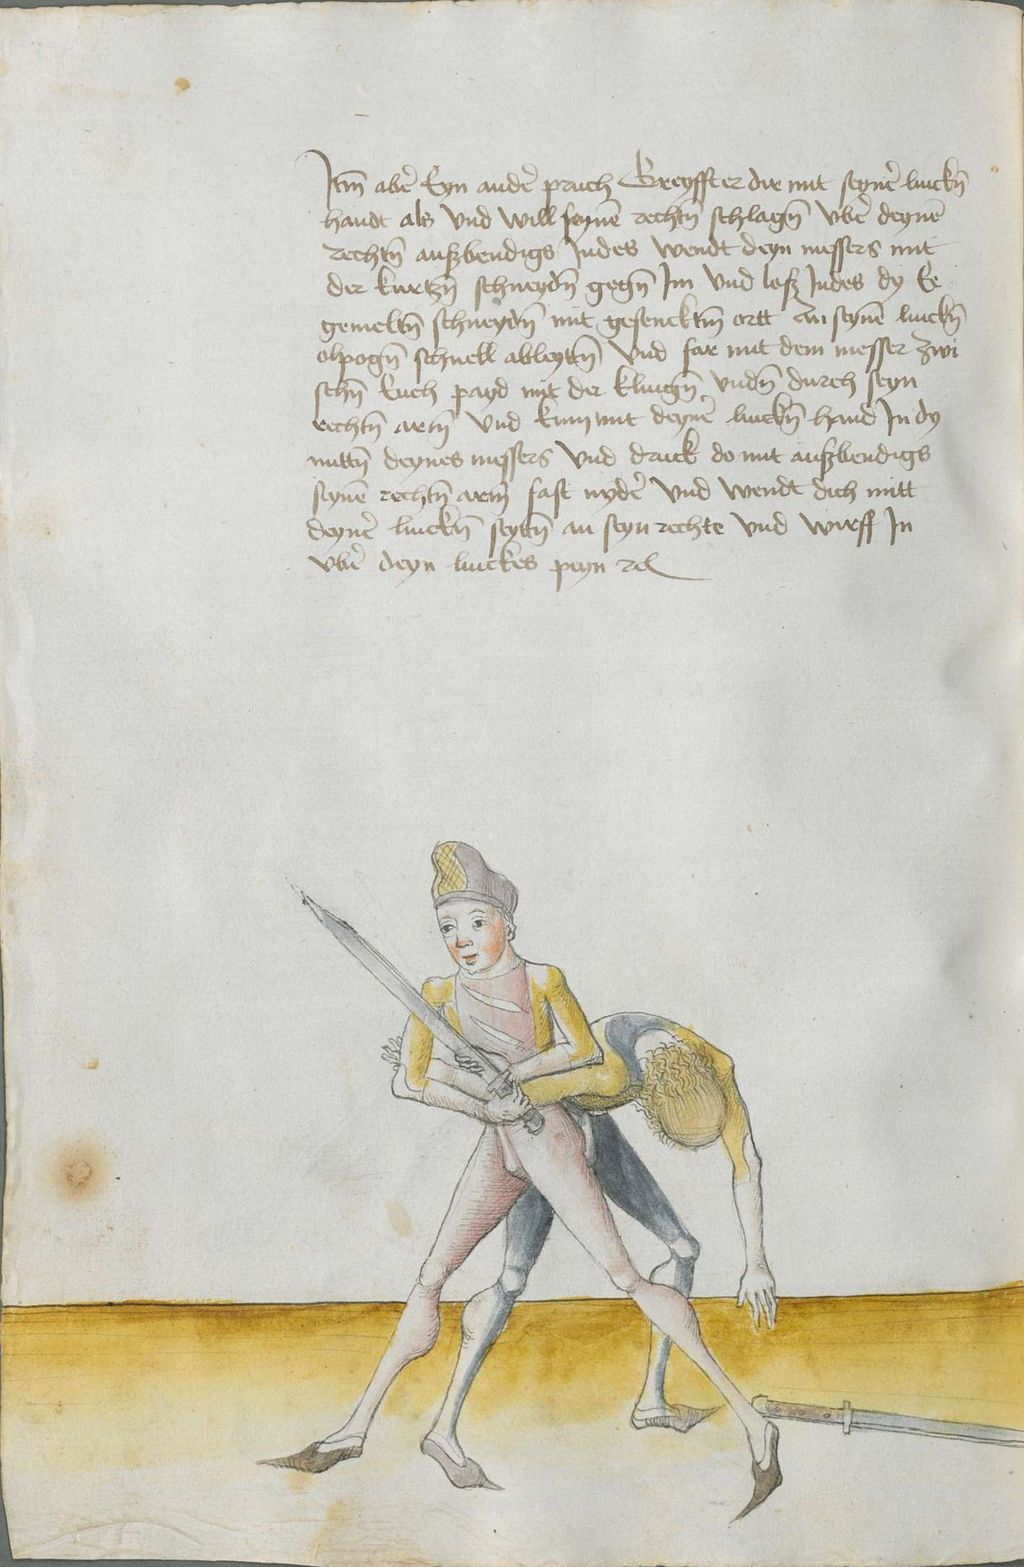 Itm̄ abē Eyn andē pruch Greyfft er dir mit seynē linckñ
handt als vnd will seynē rechtñ schlagñ vbē deynē
rechtñ außbendigs Indes wendt deyn messers mit
der kurtzñ schneydñ gegñ Im vnd loß Indes dy Ee
gemeltñ schneydñ mit gesencktm̄ ortt An seynē linckñ
elpogñ schnell ableyttñ vnd far mit dem messer zwi
schñ Euch payd mit der klingñ vndñ durch seyn
rechtñ arm̄ vnd kum mit deynē linckñ hand In dy
mittñ deynes messers vnd druck do mit außbendigs
seynē rechtñ arm̄ fast nydē vnd wendt dich mitt
deynē linckñ seyttñ an seyn rechte vnd wirff In
vbē deyn linckes peyn rc